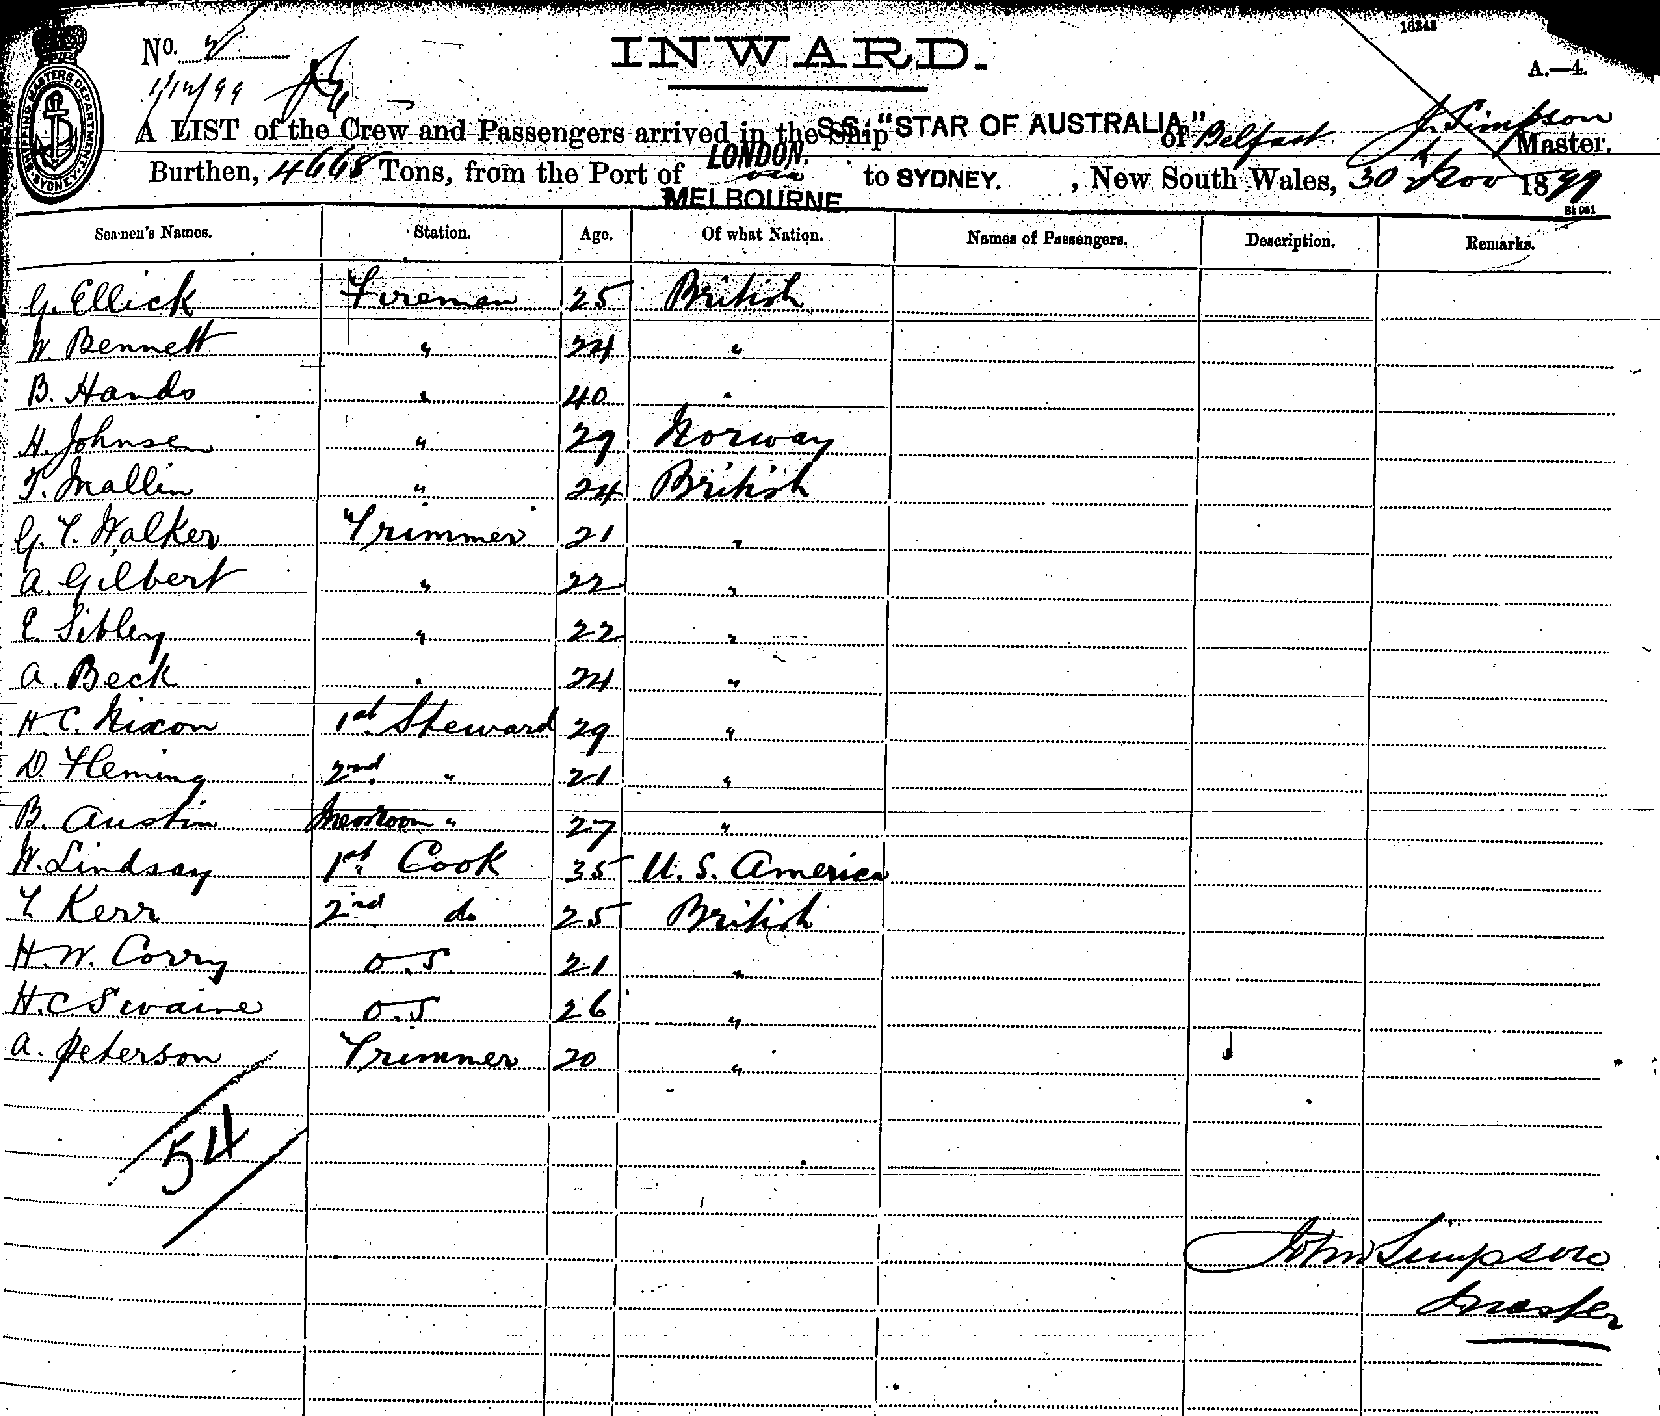 INWARD.
No. 2
1/12/99
A.—4.
SHIPPING MASTERS DEPARTMENT SYDNEY
A LIST of the Crew and Passengers arrived in the Ship S.S. "STAR OF AUSTRALIA" of Belfast J. Simpson Master,
Burthen, 4668 Tons, from the Port of LONDON. via MELBOURNE to SYDNEY. , New South Wales, 30th Nov 1899
Seamen's Names. Station. Age. Of what Nation. Names of Passengers. Description. Remarks.
G. Ellick Fireman 25 British
W. Bennett " 24 "
B. Hands " 40 "
H. Johnsen " 29 Norway
T. Mallin " 24 British
G. T. Walker Trimmer 21 "
A. Gilbert " 22 "
E. Sibley " 22 "
A. Beck " 24 "
H. C. Nixon 1st Steward 29 "
D. Fleming 2nd " 21 "
B. Austin Messroom " 27 "
W. Lindsay 1st Cook 35 U. S. America
T Kerr 2nd do 25 British
H. W. Corry O.S. 21 "
H. C Swaine O.S 26 "
A. Peterson Trimmer 20 "
54
John Simpson
Master